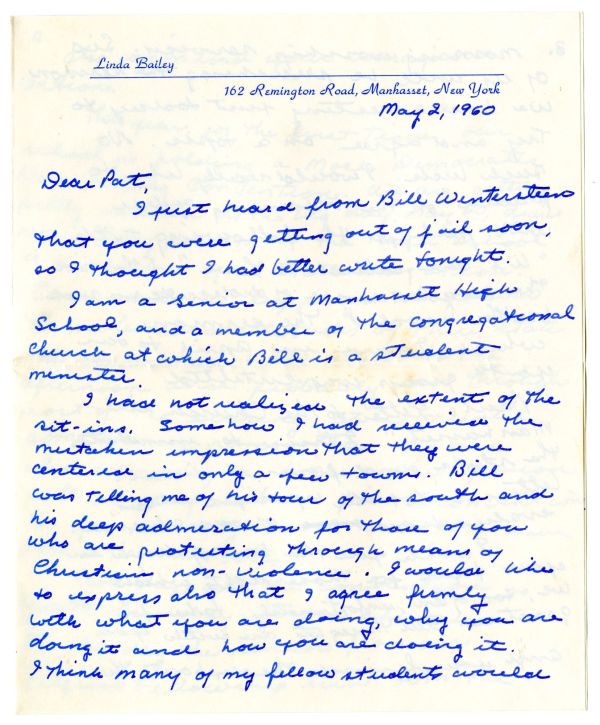 Linda Bailey
162 Remington Road, Manhasset, New York
May 2, 1960
Dear Pat,
I just heard from Bill Wintersteen
that you were getting out of jail soon,
so I thought I had better write tonight.
I am a senior at Manhasset High
School, and a member of the Congregational
church at which Bill is a student
minister.
I had not realized the extent of the
sit-ins. Somehow I had received the
mistaken impression that they were
centered in only a few towns. Bill
was telling me of his tour of the south and
his deep admiration for those of you
who are protesting through means of
Christian non-violence. I would like
to express also that I agree firmly
with what you are doing, why you are
doing it and how you are doing it.
I think many of my fellow students would